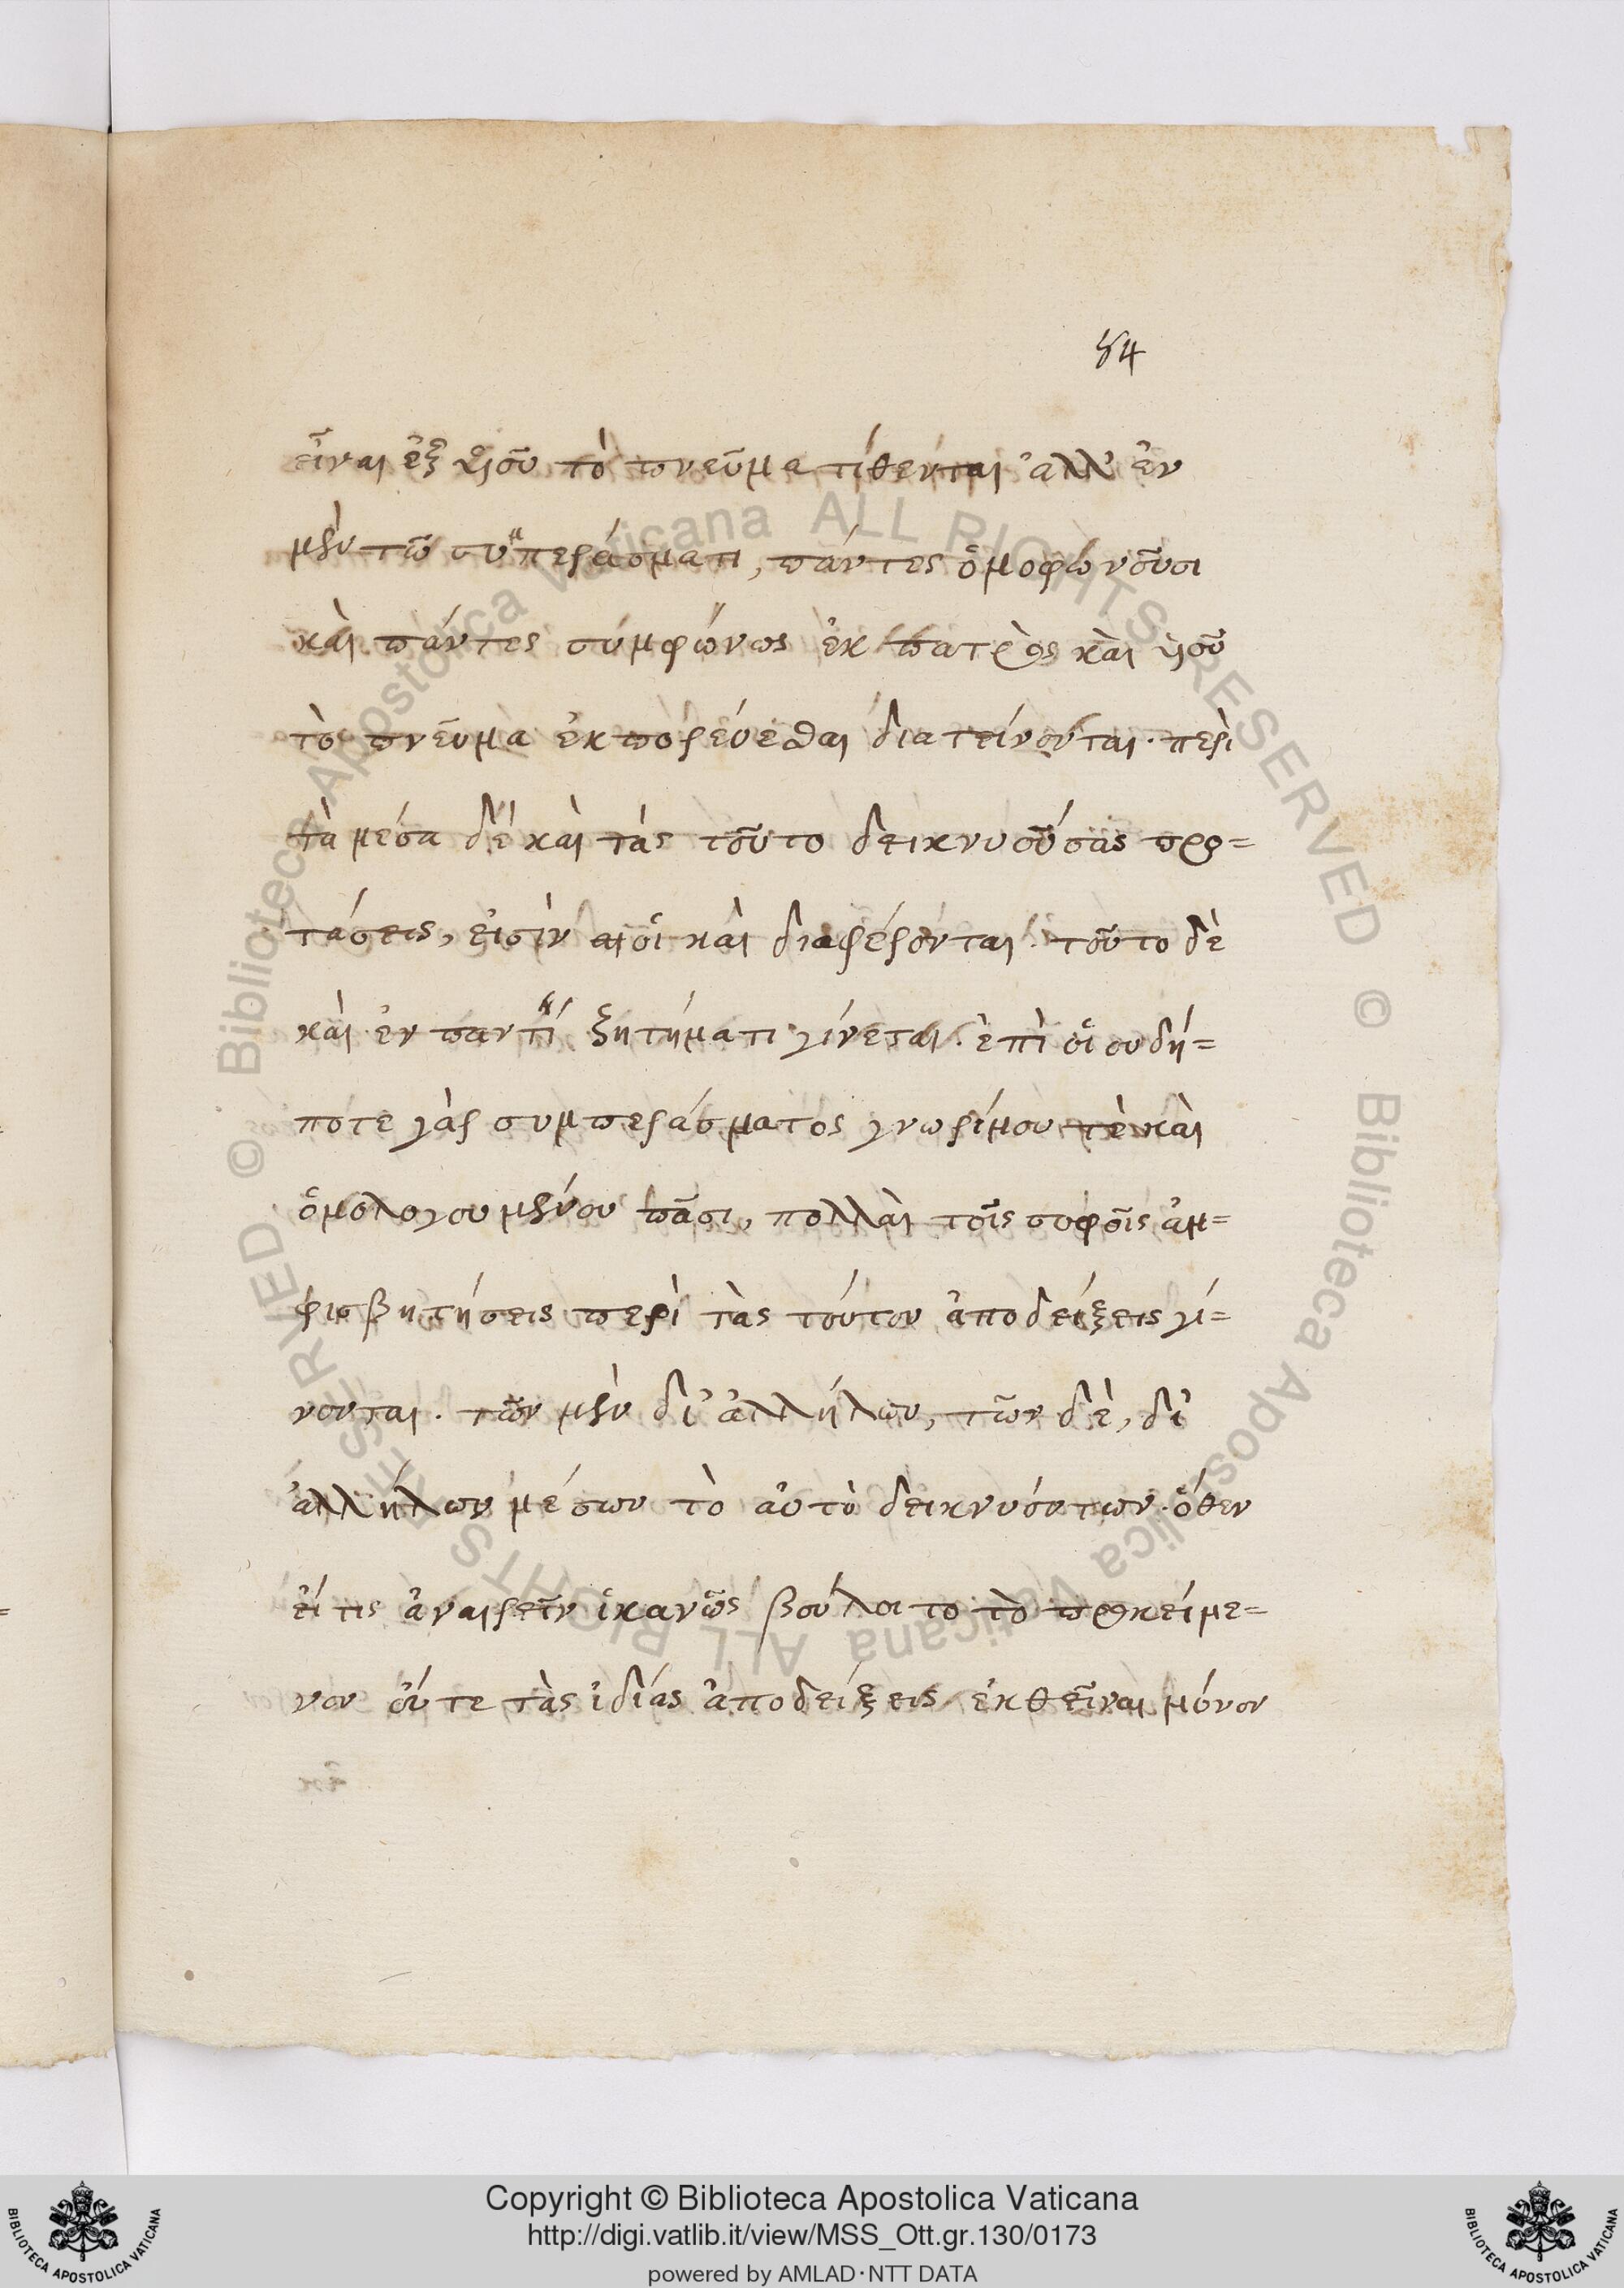 54
εἶναι ἐξ υἱοῦ τὸ πνεῦμα τίθενται ἀλλ' ἐν
μὲν τῶ συμπεράσματι, πάντες ὁμοφώνοῦσι
καὶ πάντες συμφώνως ἐκ πατρὸς καὶ υἱοῦ
τὸ πνεῦμα ἐκπορέυεσθαι διατείνονται. περὶ
τὰ μέσα δὲ καὶ τάς τοῦτο δεικνυούσας προ=
τάσεις, εἰσὶν οἱ καὶ διαφέρονται. τοῦτο δὲ
καὶ ἐν παντὶ ζητήματι γίνεται. ἐπὶ οἱουδή=
ποτε γὰρ συμπεράσματος γνωρίμου τὲ καὶ
ὁμολογουμένου πᾶσι, πολλὰι τοῖς σοφοῖς ἀμ=
φισβητήσεις περὶ τὰς τούτου ἀποδείξεις γί=
νονται. τῶν μὲν δι' ἀλλήλων, τῶν δὲ, δι'
ἀλλήλων μέσων τὸ αὐτὸ δεικνυόντων. ὅθεν
εἴ τις ἀναιρεῖν ἱκανῶς βούλοιτο τὸ προκείμε=
νον οὔτε τὰς ἰδίας ἀποδείξεις ἐκθεῖναι μόνον
Copyright © Biblioteca Apostolica Vaticana
http://digi.vatlib.it/view/MSS_Ott.gr.130/0173
powered by AMLAD·NTT DATA
BIBLIOTECA APOSTOLICA VATICANA
BIBLIOTECA APOSTOLICA VATICANA
© Biblioteca Apostolica Vaticana ALL RIGHTS RESERVED
© Biblioteca Apostolica Vaticana ALL RIGHTS RESERVED